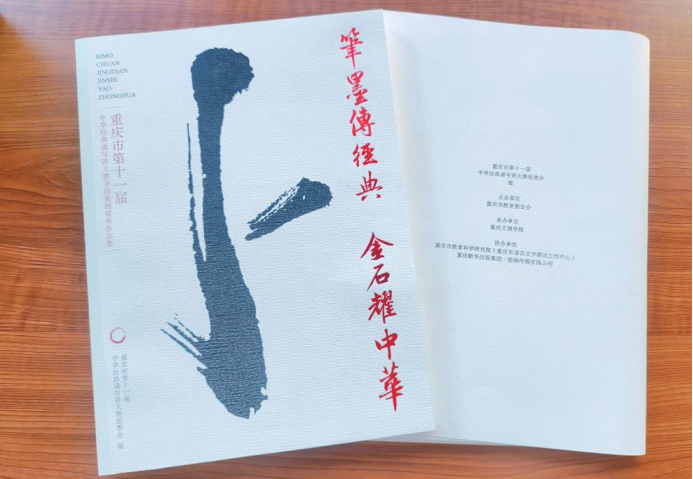 BIMO
CHUAN
JINGDIAN
JINSHI
YAO
ZHONGHUA
筆墨傳經典
金石耀中華
重庆市第十一届
中华经典诵写讲大赛书法篆刻优秀作品集
重庆市第十一届
中华经典诵写讲大赛组委会 编
重庆市第十一届
中华经典诵写讲大赛组委会
编
主办单位
重庆市教育委员会
承办单位
重庆文理学院
协办单位
重庆市教育科学研究院（重庆市语言文字测试工作中心）